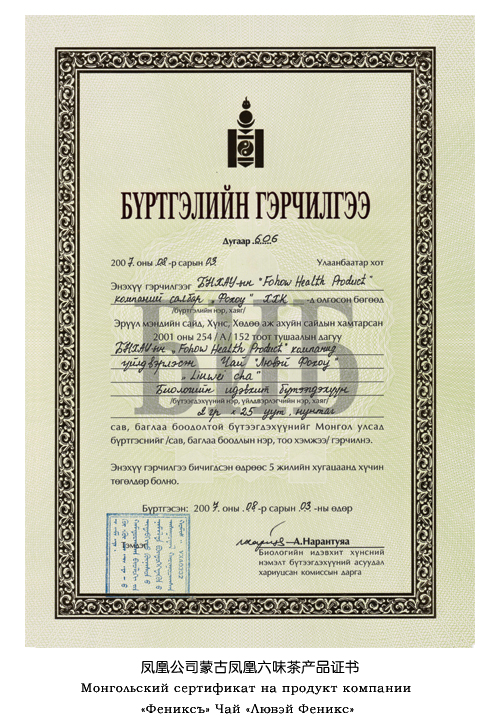 БҮРТГЭЛИЙН ГЭРЧИЛГЭЭ
Дугаар 606
2007 оны 08-р сарын 03 Улаанбаатар хот
Энэхүү гэрчилгээг БНХАУ-ын "Fohow Health Product"
компаний салбар "Фохоу" ХХК -д олгосон бөгөөд
/бүртгэлийн нэр, хаяг/
Эрүүл мэндийн сайд, Хүнс, Хөдөө аж ахуйн сайдын хамтарсан
2001 оны 254 / А / 152 тоот тушаалын дагуу
БНХАУ-ын "Fohow Health Product" компанид
үйлдвэрлэсэн Чай "Лювэй Фохоу"
"Liuwei cha"
Биологийн идэвхит бүтээгдэхүүн
/бүтээгдэхүүний нэр, үйлдвэрлэгчийн нэр, хаяг/
2 гр x 25 уут, нунтаг
сав, баглаа боодолтой бүтээгдэхүүнийг Монгол улсад
бүртгэснийг /сав, баглаа боодлын нэр, тоо хэмжээ/ гэрчилнэ.
Энэхүү гэрчилгээ бичигдсэн өдрөөс 5 жилийн хугацаанд хүчин
төгөлдөр болно.
Бүртгэсэн: 2007 оны 08-р сарын 03 -ны өдөр
/Тэмдэг/
А.Нарантуяа
Биологийн идэвхит хүнсний
нэмэлт бүтээгдэхүүний асуудал
хариуцсан комиссын дарга
БНБ
凤凰公司蒙古凤凰六味茶产品证书
Монгольский сертификат на продукт компании
«Фениксъ» Чай «Лювэй Феникс»